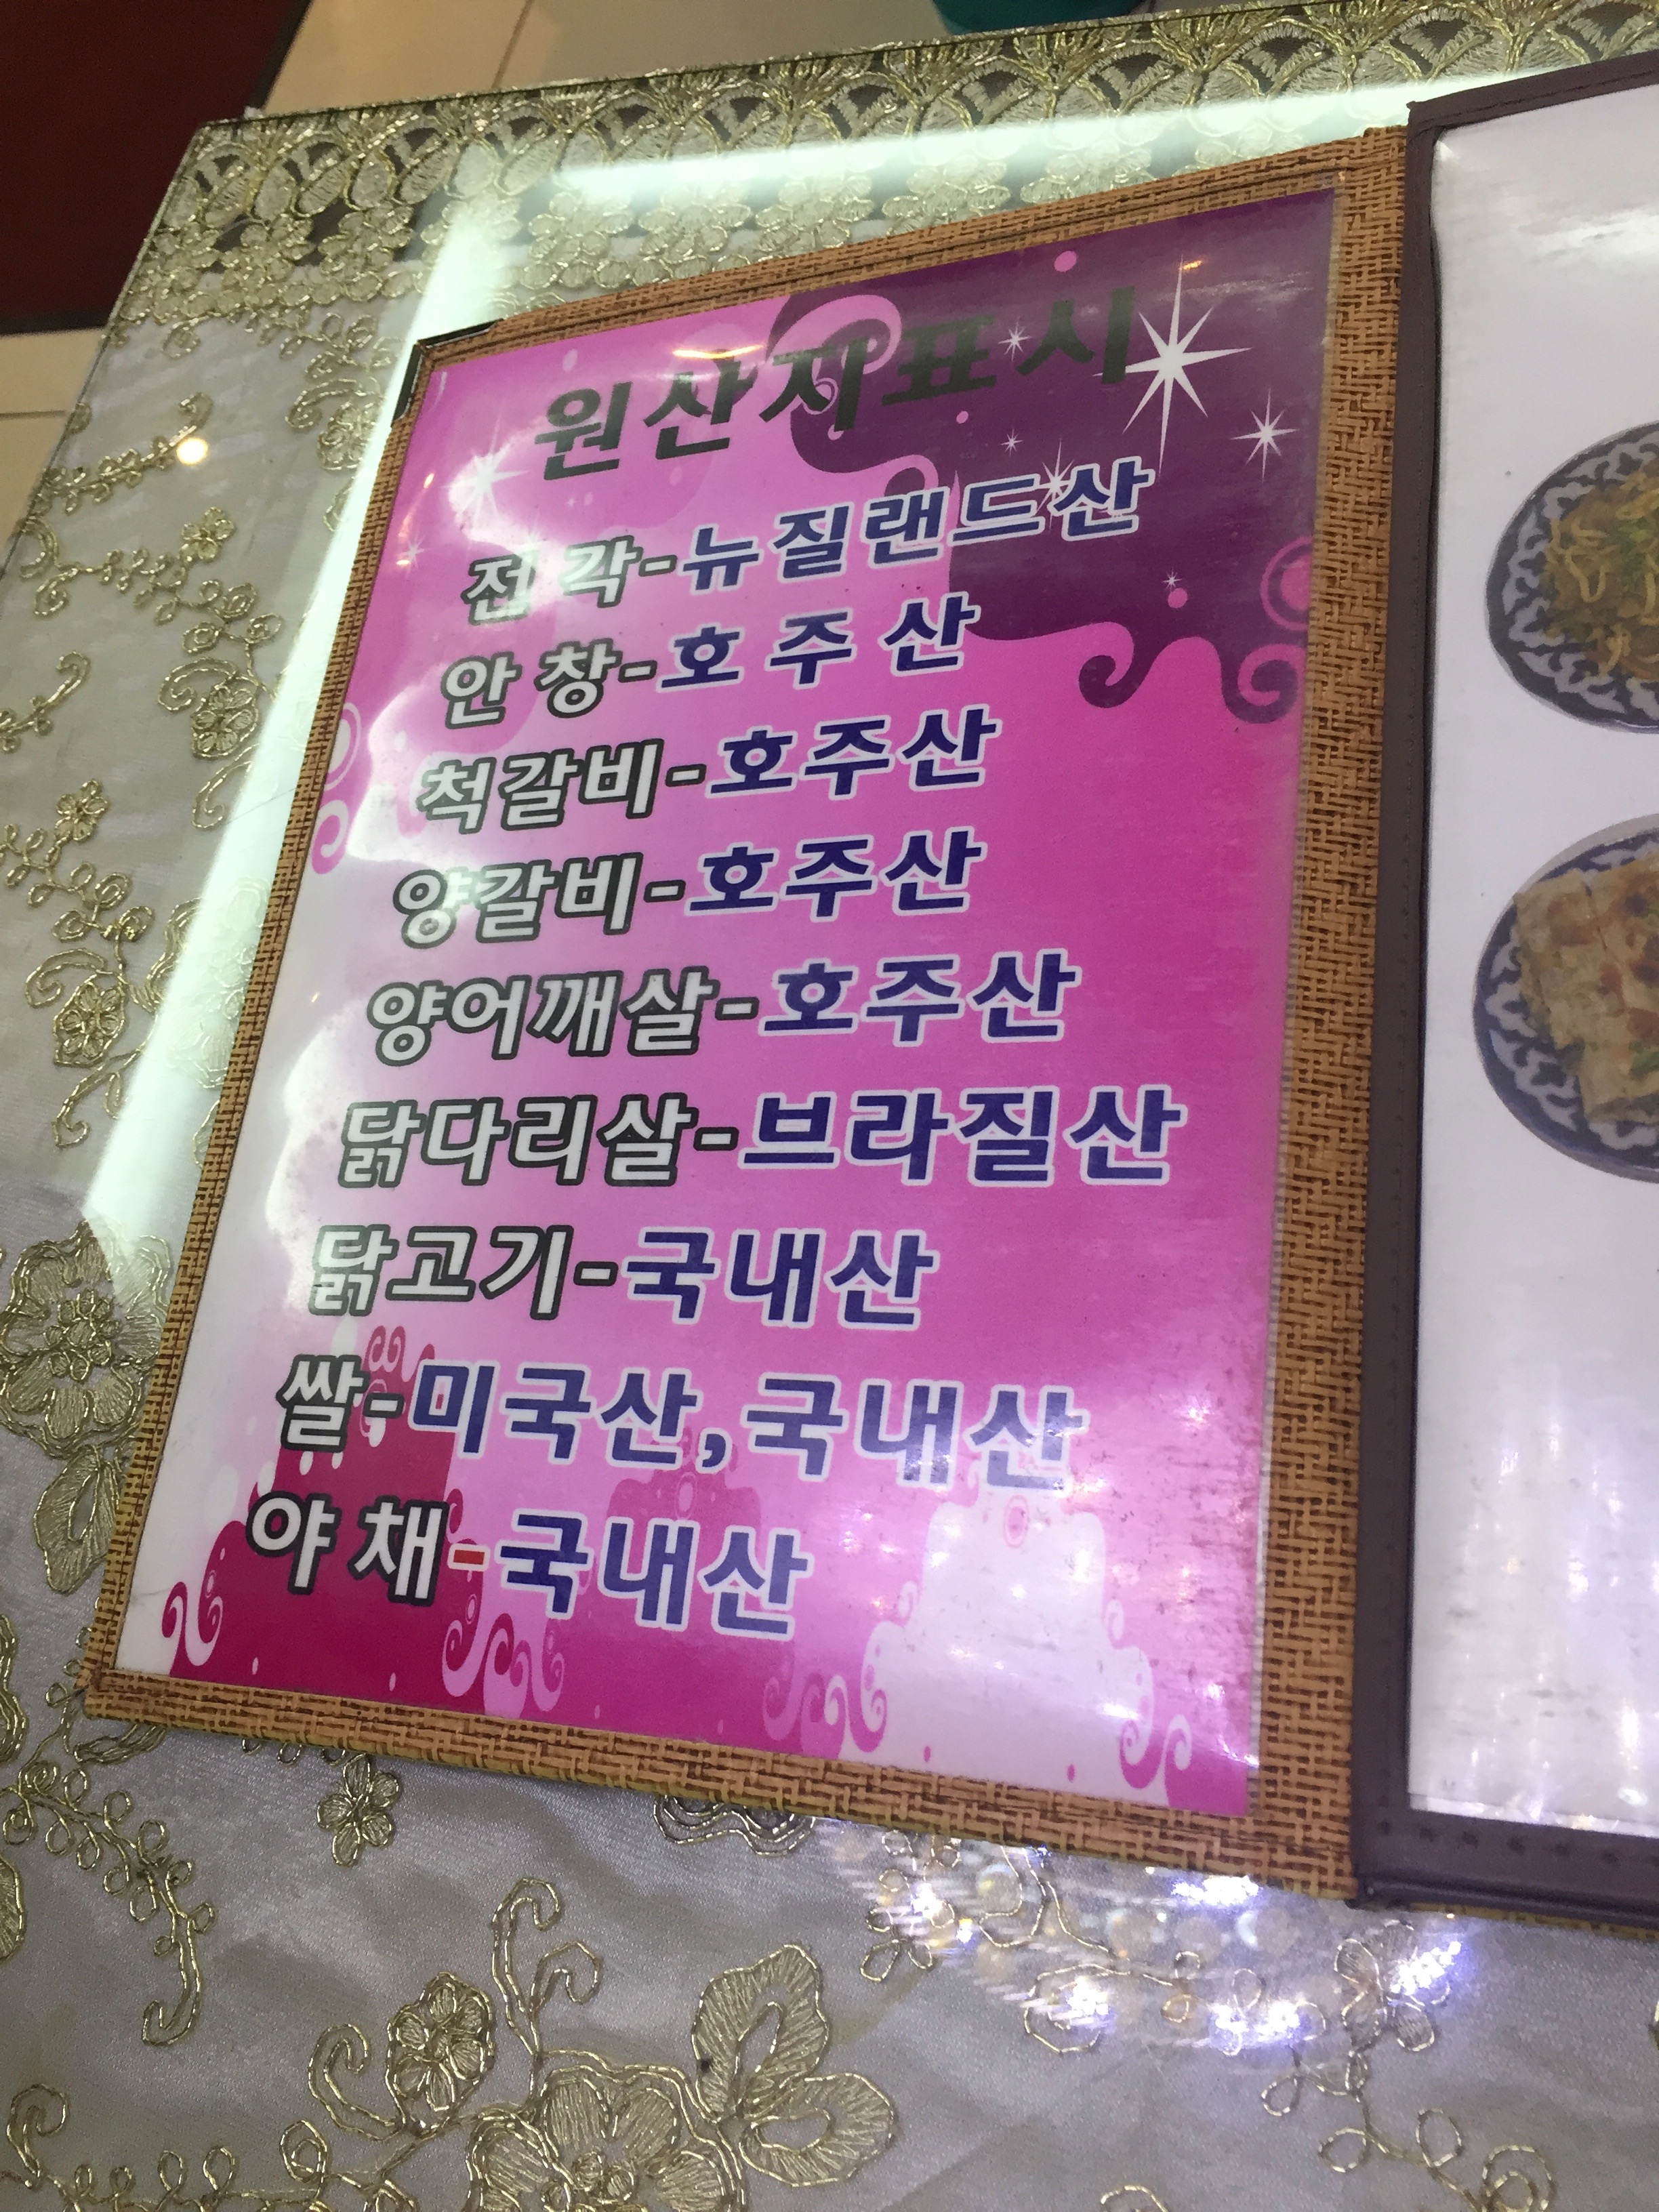 원산지표시
전 각-뉴질랜드산
안 창-호 주 산
척갈비-호주산
양갈비-호주산
양어깨살-호주산
닭다리살-브라질산
닭고기-국내산
쌀-미국산,국내산
야 채-국내산